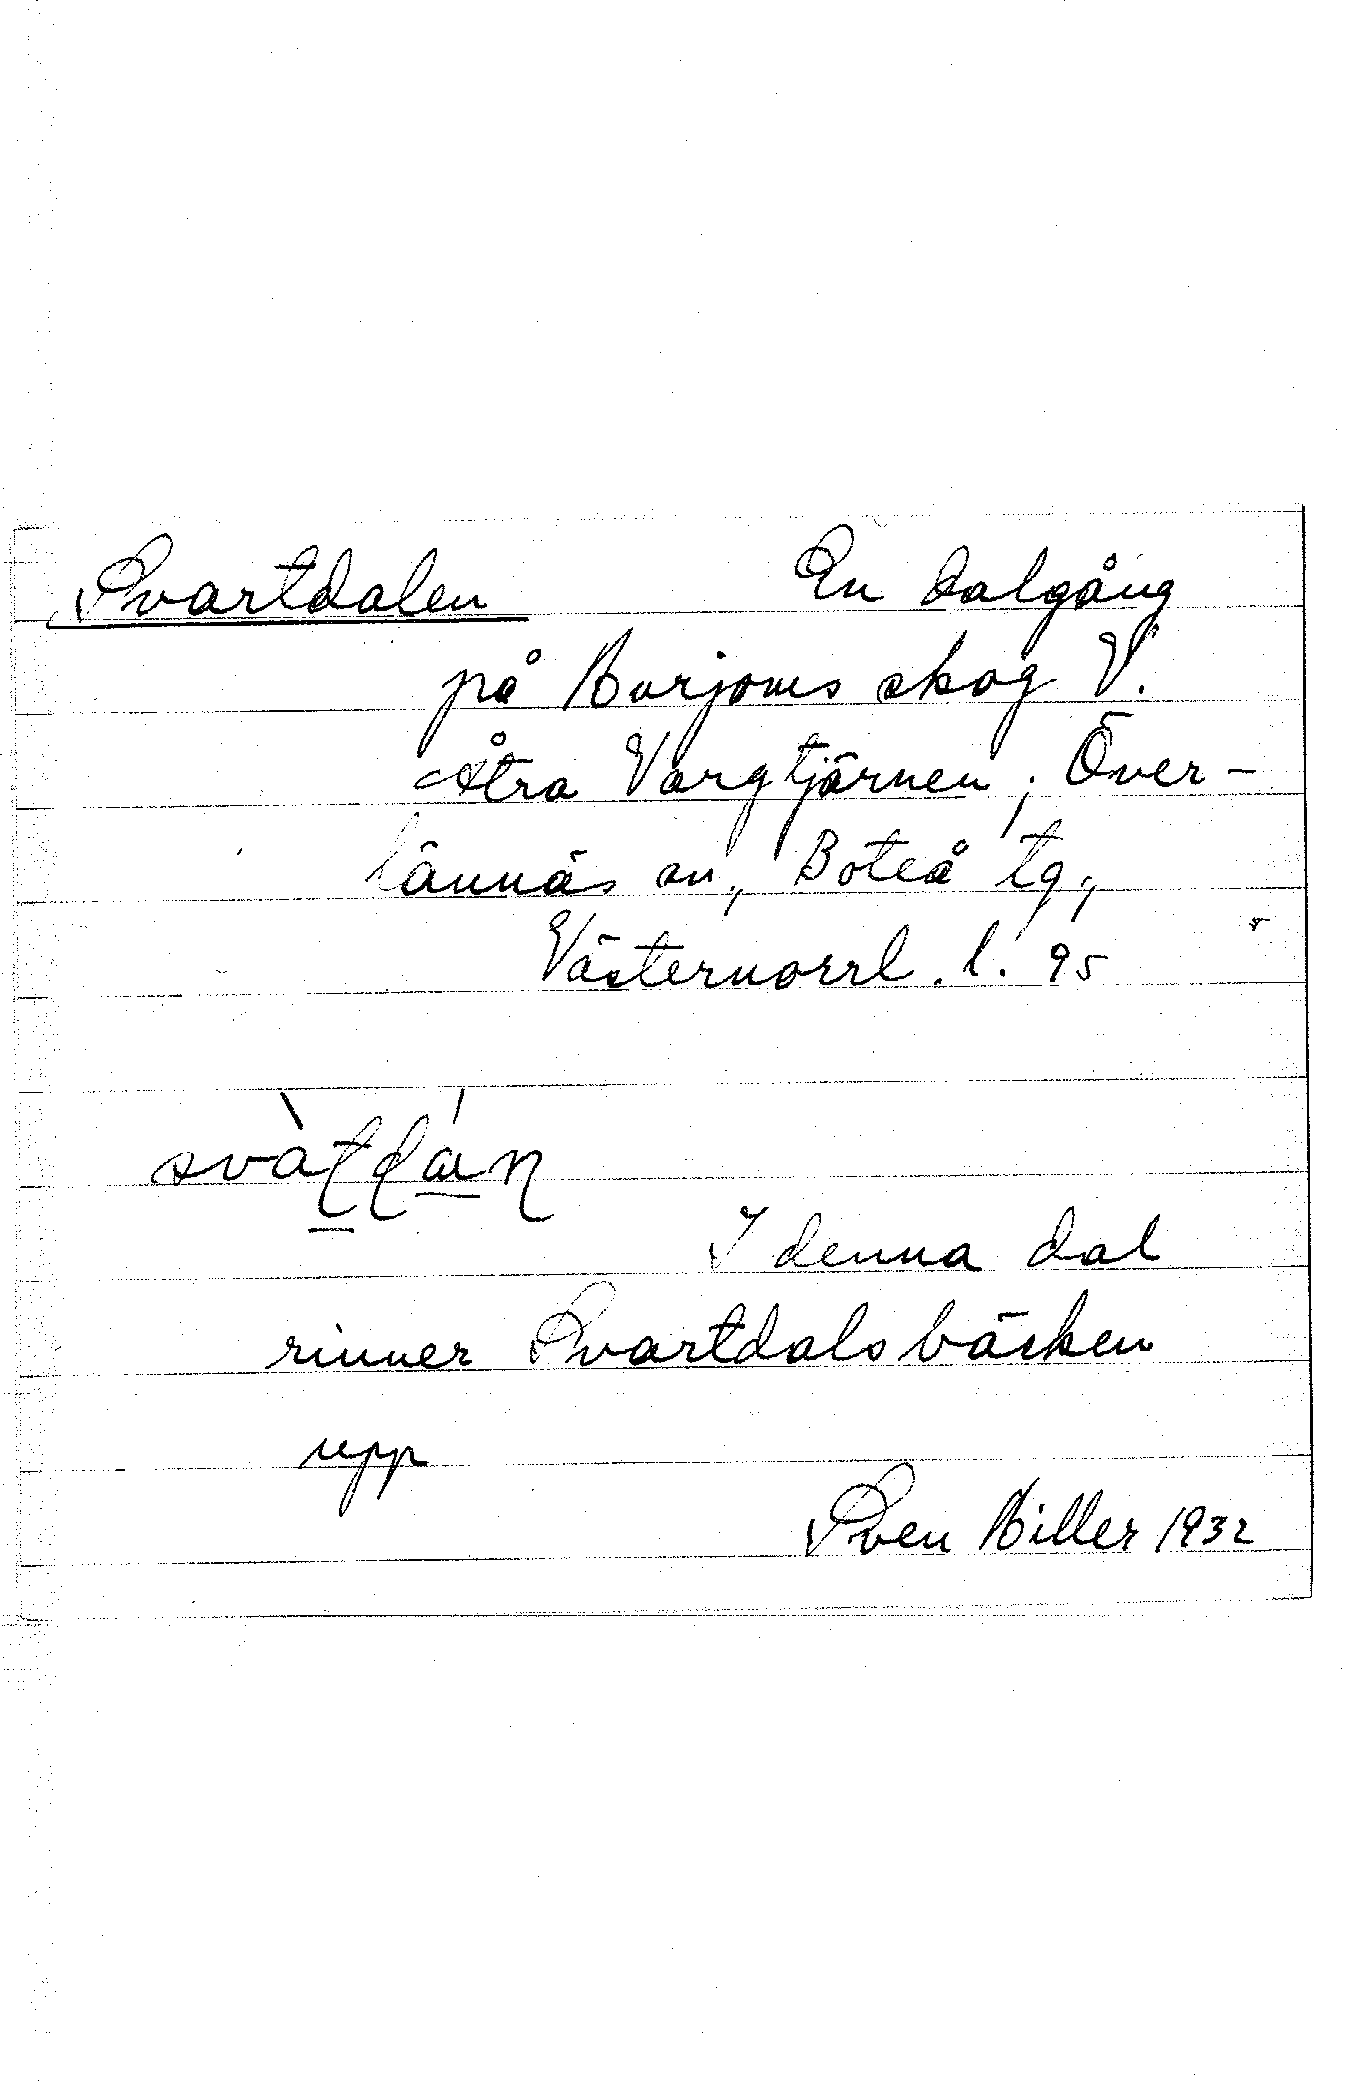 Svartdalen En dalgång
på Borjoms skog V.
Åtra Vargtjärnen; Över-
lännäs sn, Boteå tg,
Västernorrl. l. 95
I denna dal
rinner Svartdalsbäcken
upp
Sven Hiller 1932